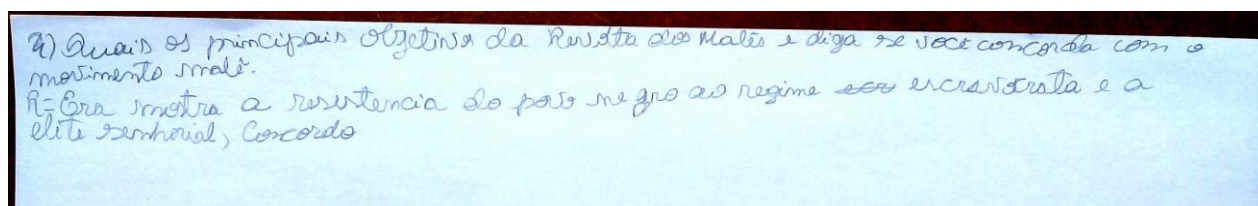 4) Quais os principais objetivos da Revolta dos Malês e diga se você concorda com o
movimento malê.
R= Era mostra a resistencia do povo negro ao regime escravocrata e a
elite senhorial, Concordo